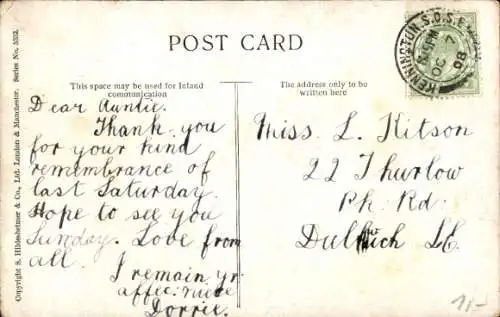 POST CARD
This space may be used for Inland
communication
The address only to be
written here
Dear Auntie.
Thank you
for your kind
remembrance of
last Saturday.
Hope to see you
Sunday. Love from
all.
I remain yr
affec: niece
Dorrie.
Miss. L. Kitson
22 Thurlow
Pk. Rd.
Dulwich S.E
KENNINGTON S.O.S.E.
08
Copyright S. Hildesheimer & Co., Ltd. London & Manchester. Series No. 5352.
1/-